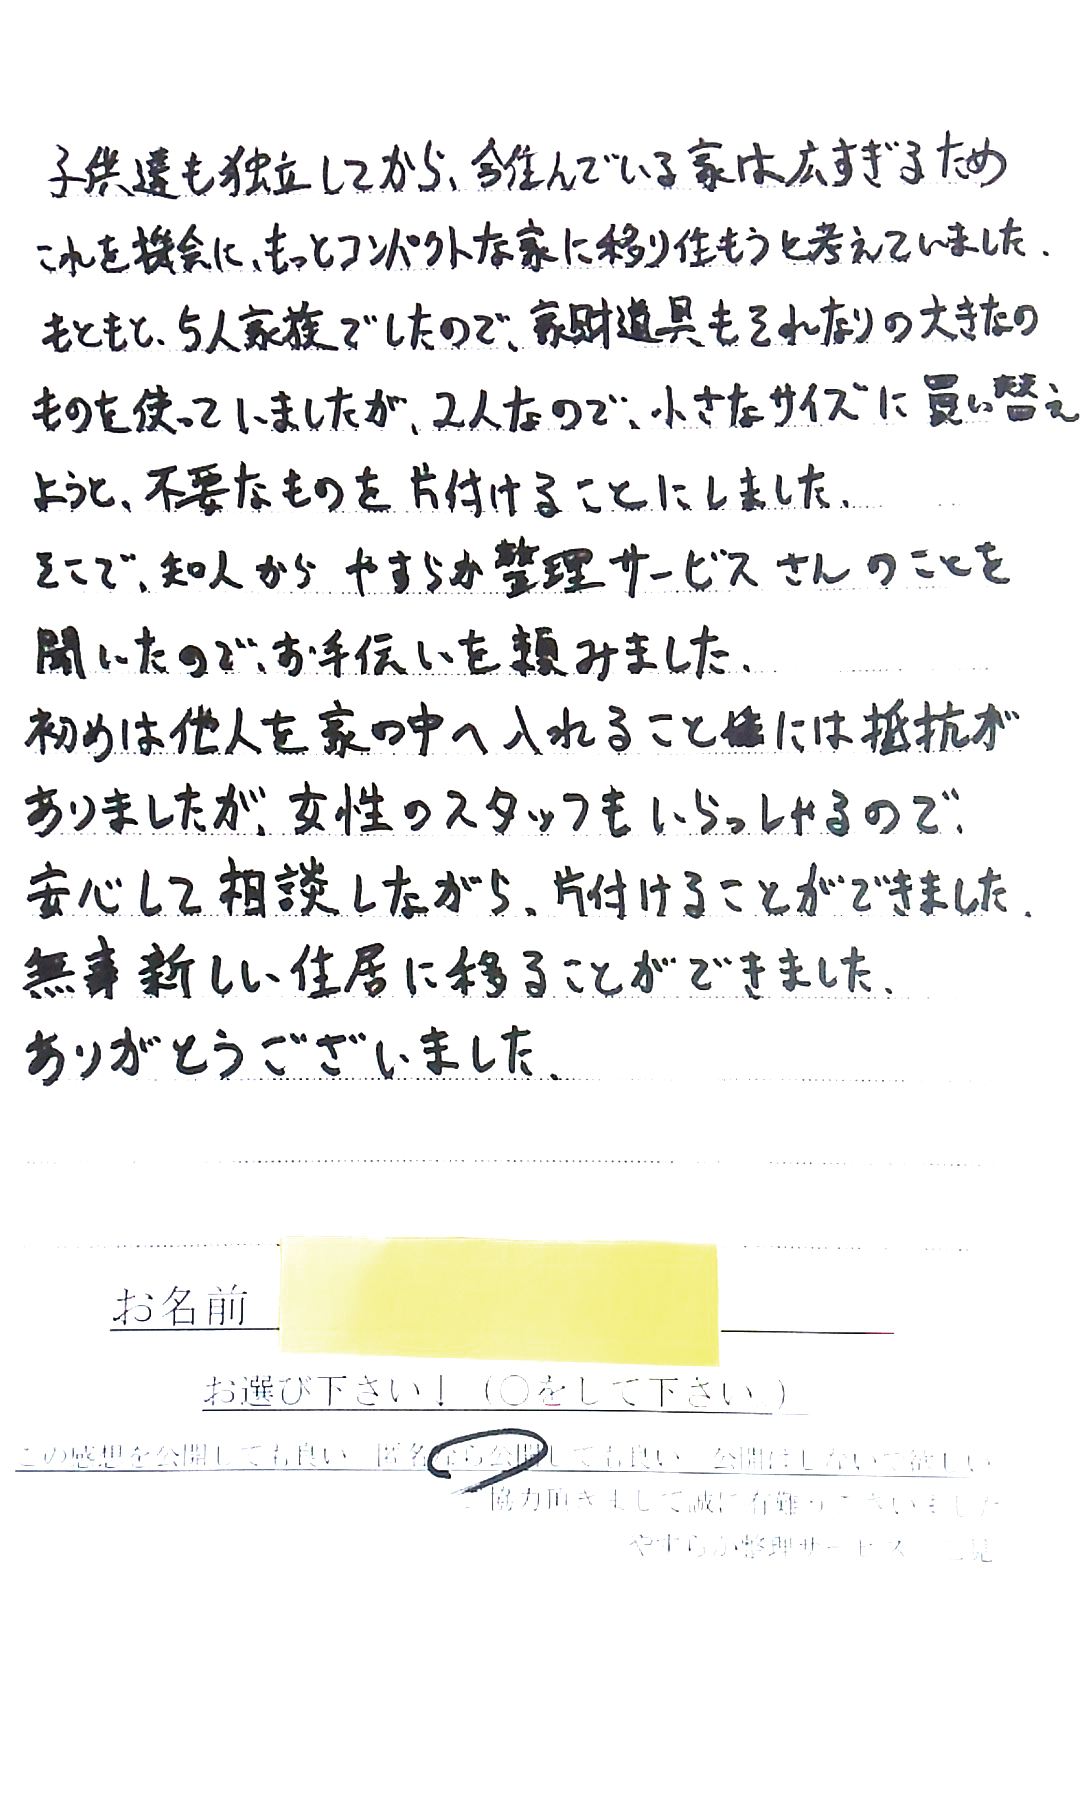 子供達も独立してから、今住んでいる家は広すぎるため
これを機会に、もっとコンパクトな家に移り住もうと考えていました。
もともと、5人家族でしたので、家財道具もそれなりの大きなの
ものを使っていましたが、2人なので、小さなサイズに買い替え
ようと、不要なものを片付けることにしました。
そこで、知人からやすらか整理サービスさんのことを
聞いたので、お手伝いを頼みました。
初めは他人を家の中へ入れることには抵抗が
ありましたが、女性のスタッフもいらっしゃるので、
安心して相談しながら、片付けることができました。
無事新しい住居に移ることができました。
ありがとうございました。
お名前
お選び下さい！（〇をして下さい。）
この感想を公開しても良い 匿名なら公開しても良い 公開はしないで欲しい
ご協力頂きまして誠に有難うございました
やすらか整理サービス